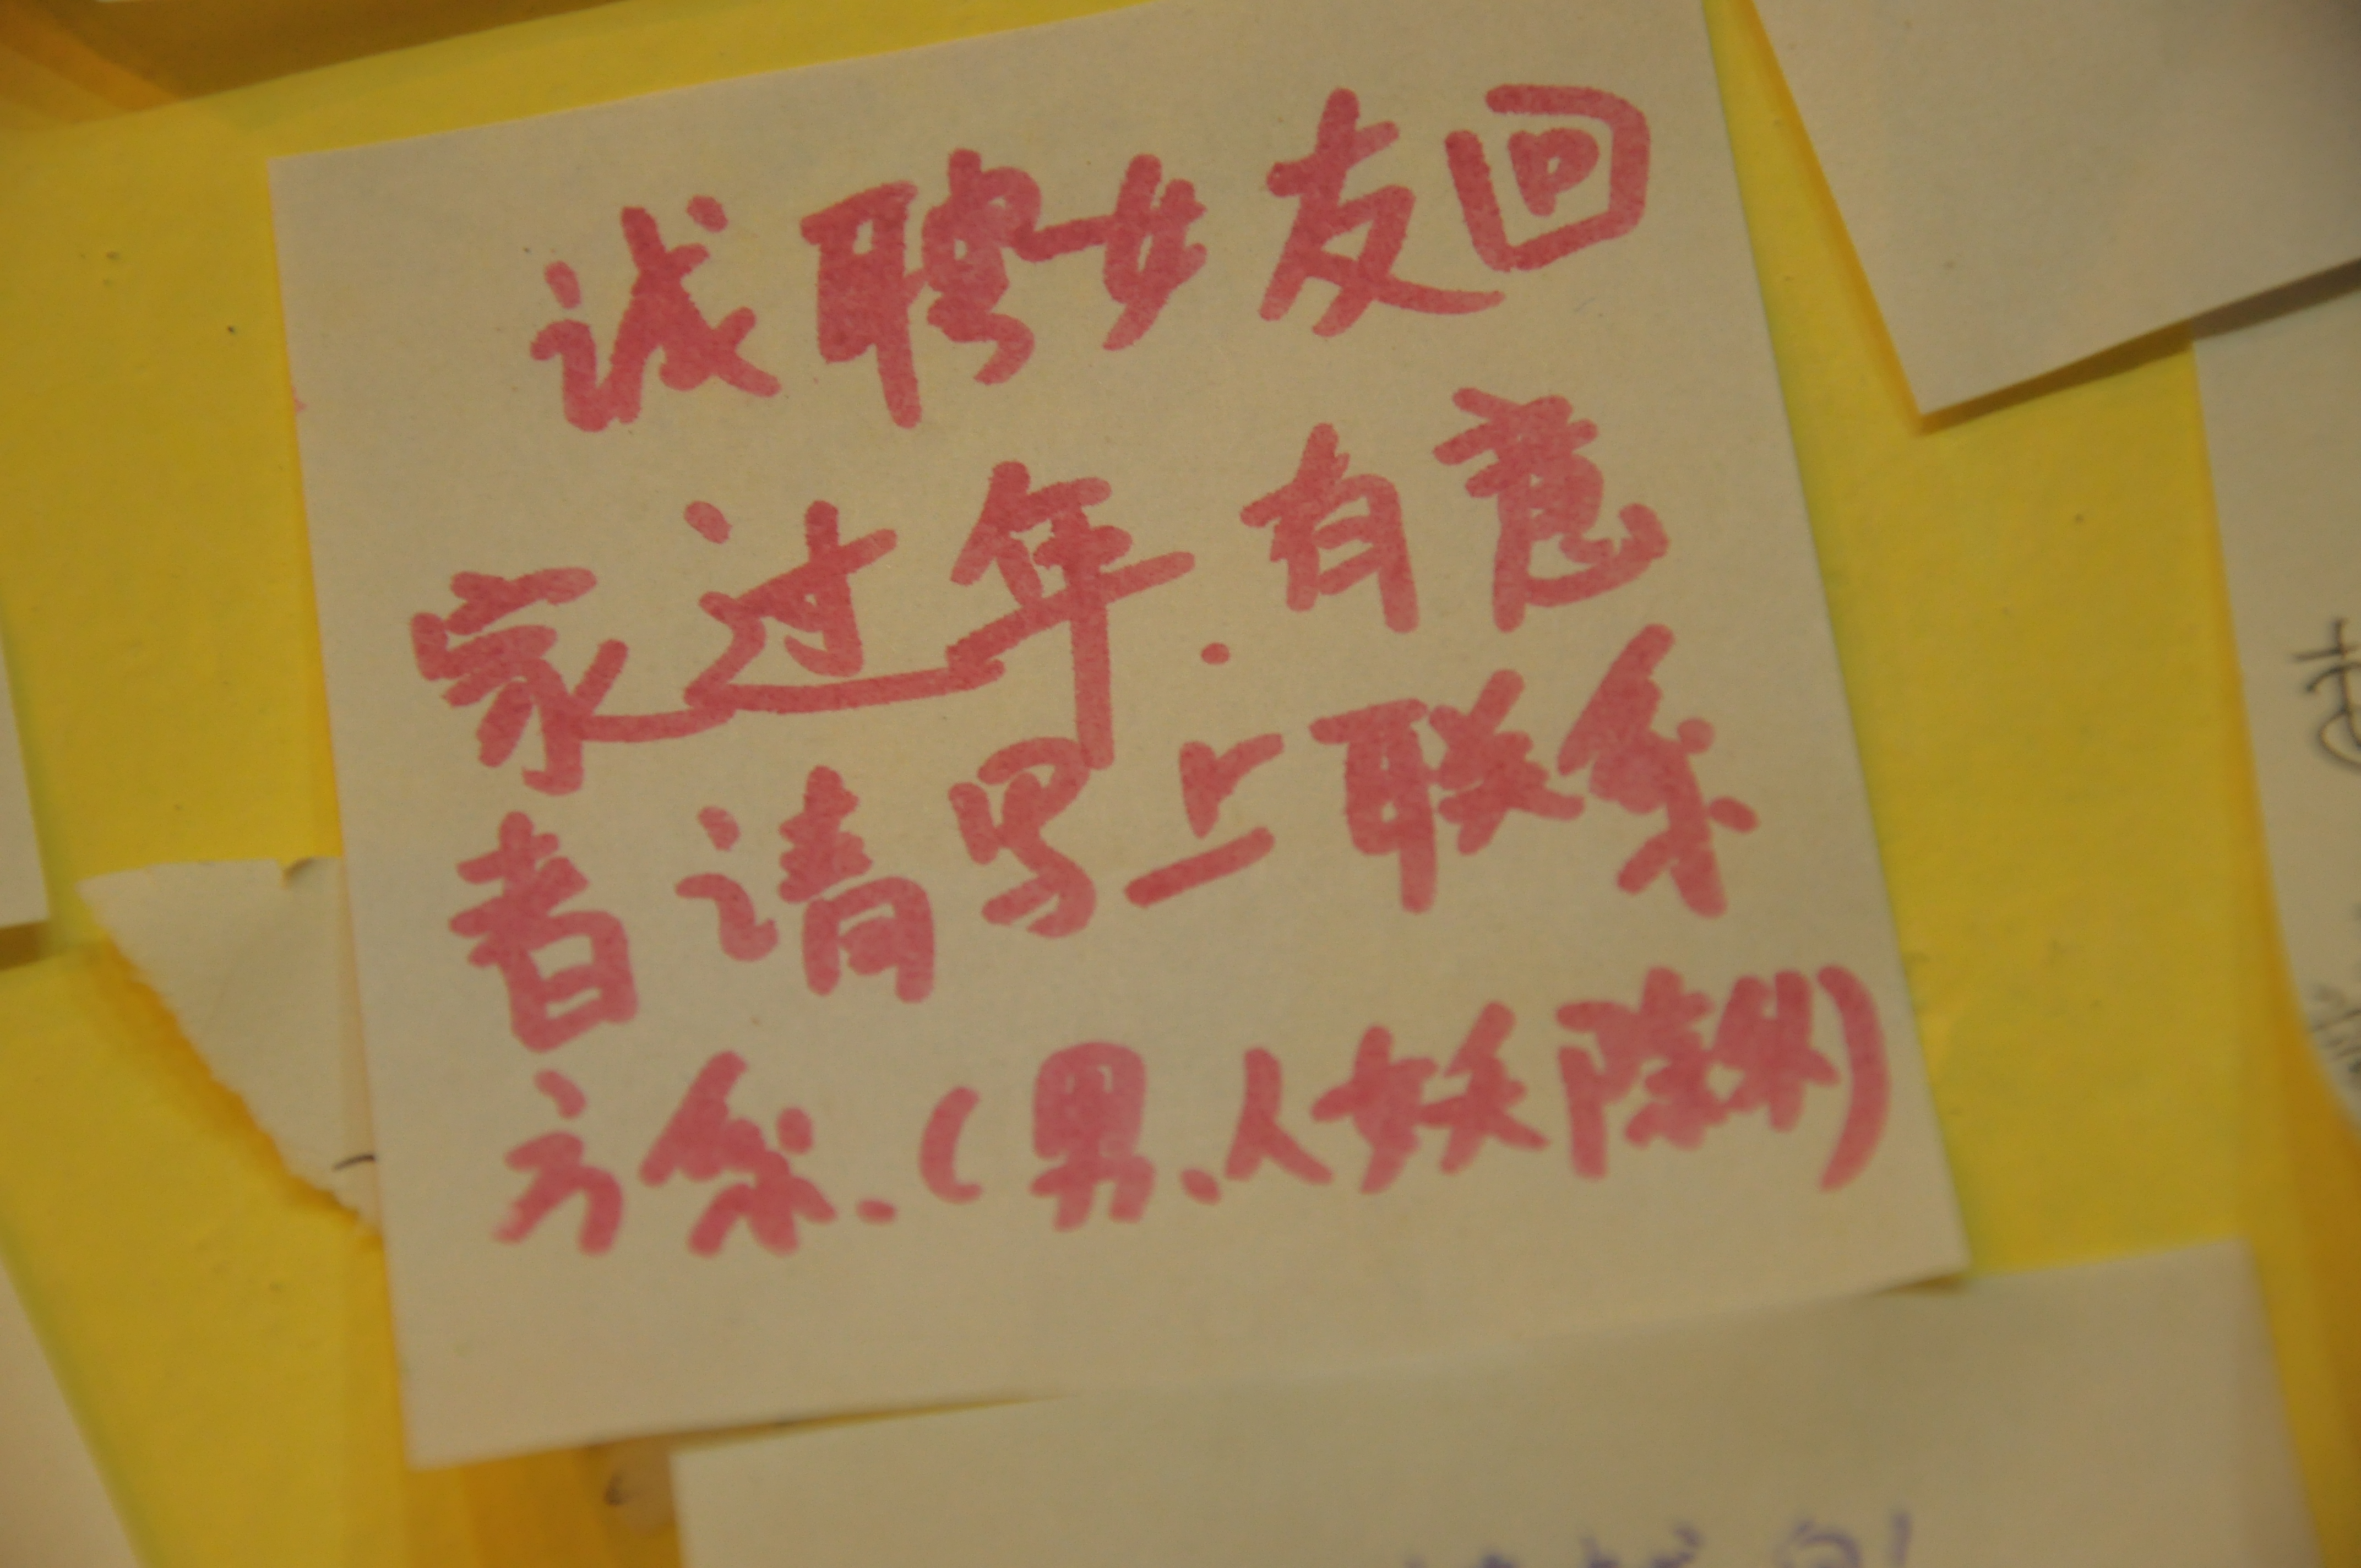 诚聘女友回
家过年.有意
者请写上联系
方系.(男、人妖除外)